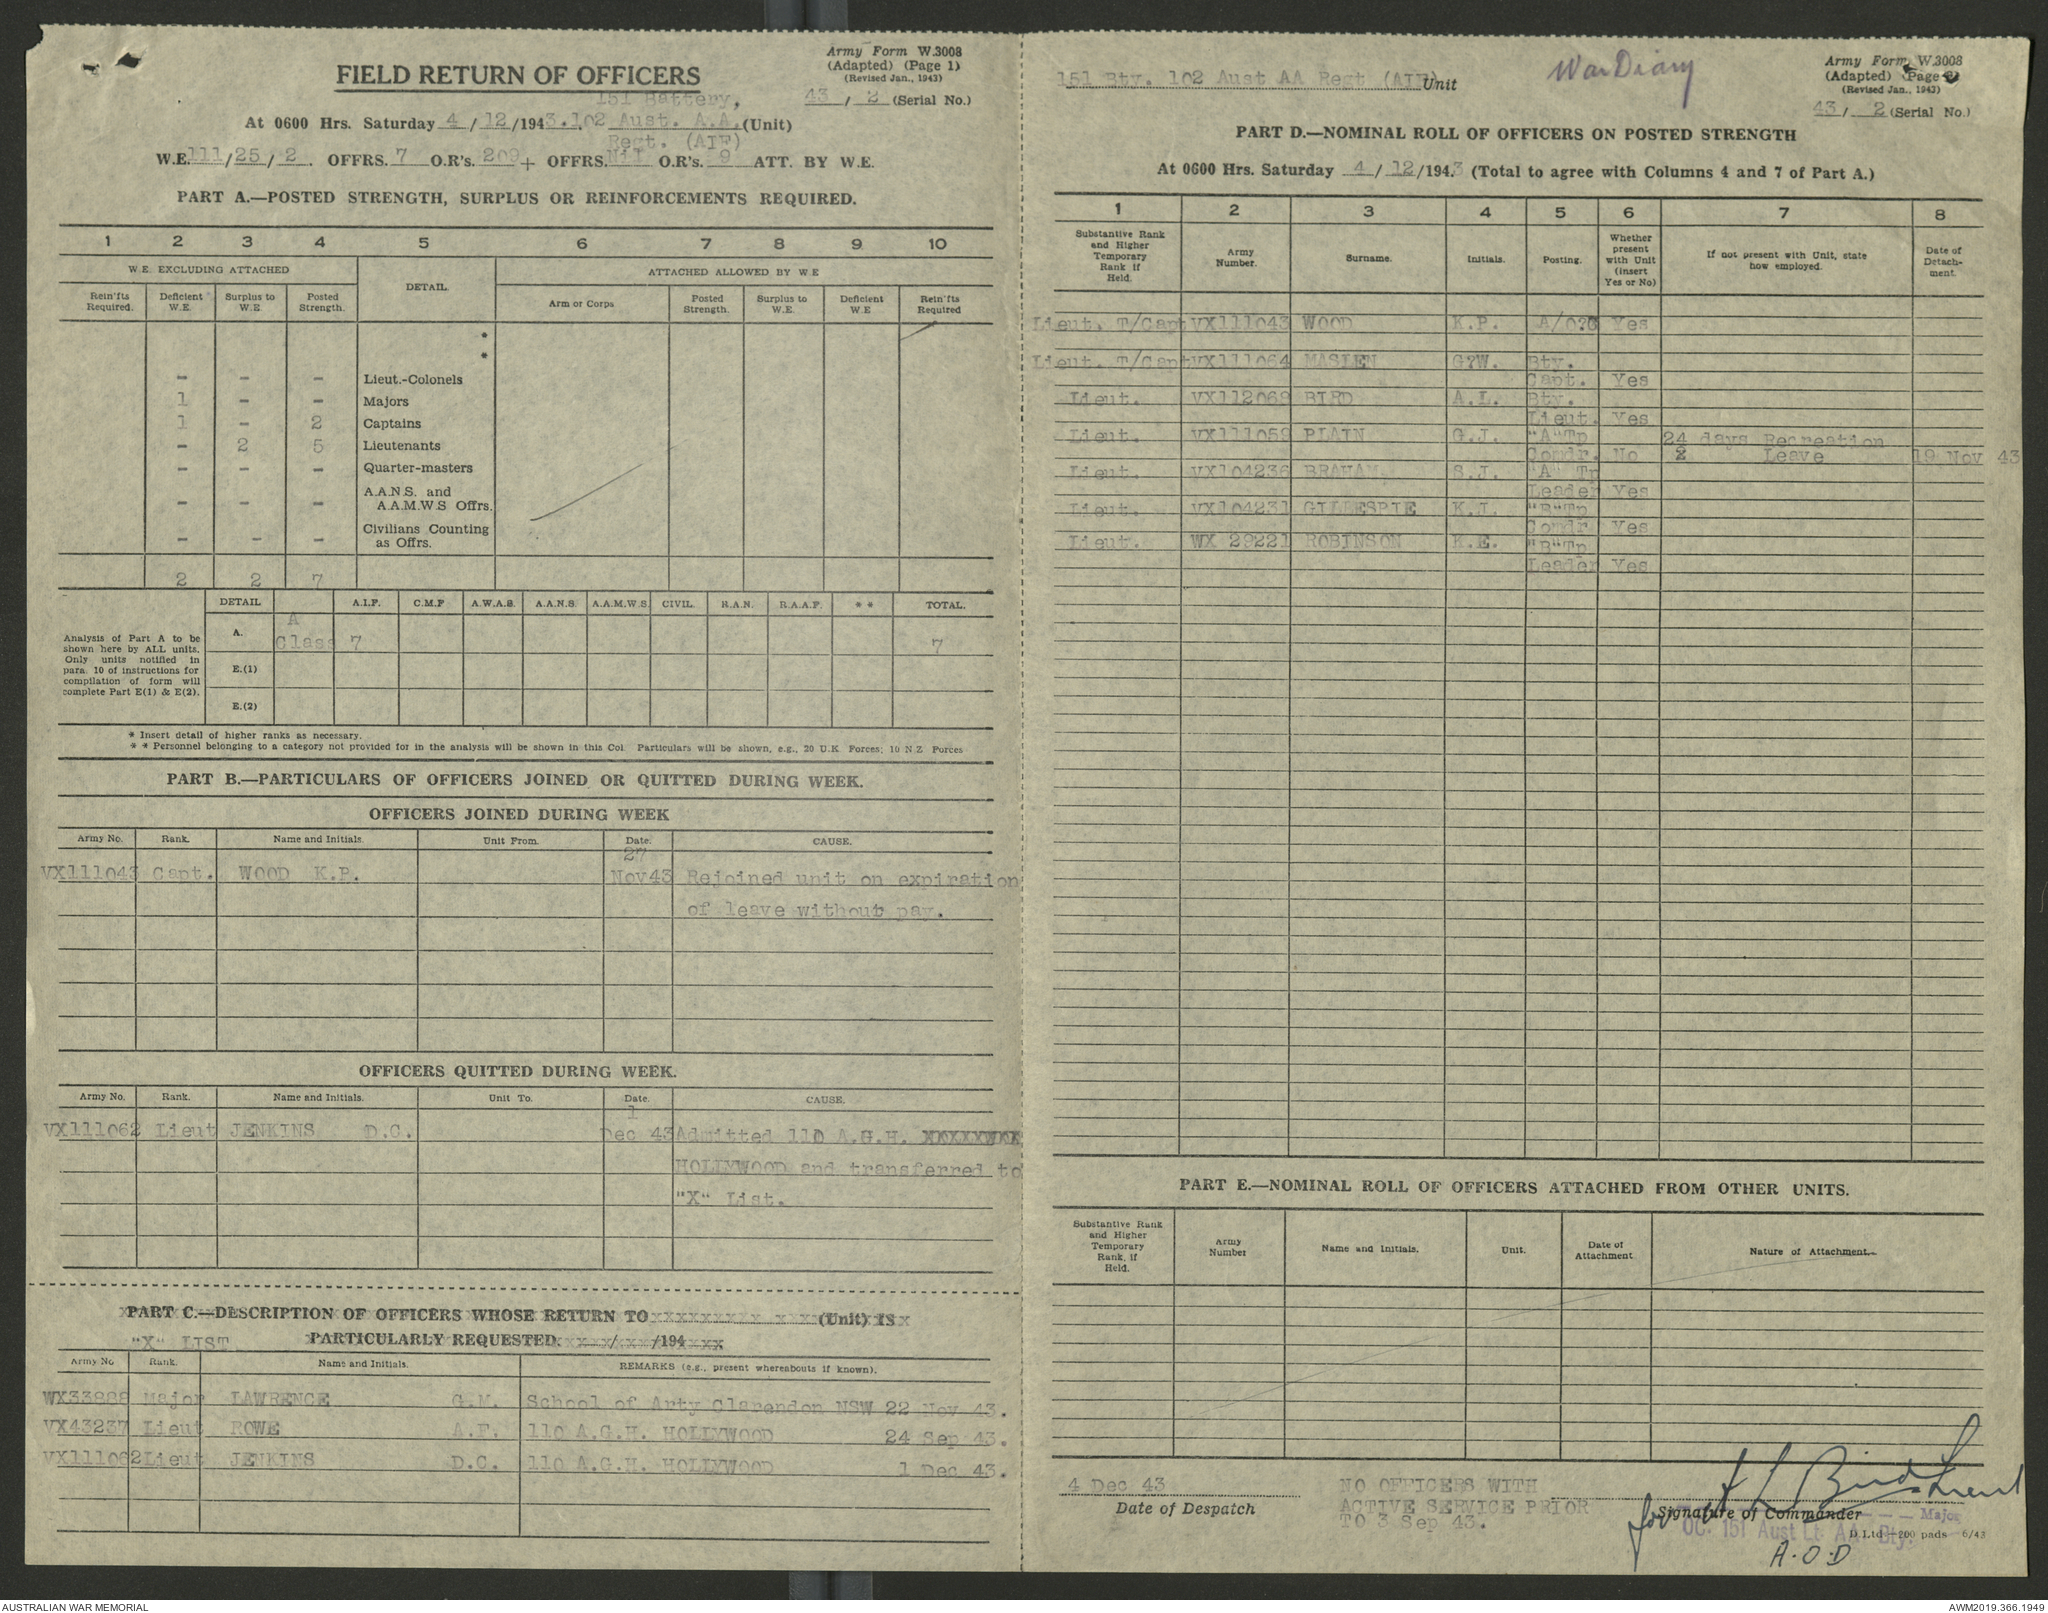 Army Form W.3008
(Adapted) (Page 1)
(Revised Jan., 1943)
FIELD RETURN OF OFFICERS
151 Battery, 43 / 2 (Serial No.)
At 0600 Hrs. Saturday 4 / 12 /1943. 102 Aust. A.A. (Unit)
Regt. (AIF)
W.E. 111/25/2. OFFRS. 7 O.R's. 209 + OFFRS. Nil O.R's. 9 ATT. BY W.E.
PART A.—POSTED STRENGTH, SURPLUS OR REINFORCEMENTS REQUIRED.
1 2 3 4 5 6 7 8 9 10
W.E. EXCLUDING ATTACHED DETAIL. ATTACHED ALLOWED BY W.E
Rein'fts Required. Deficient W.E. Surplus to W.E Posted Strength. Arm or Corps Posted Strength. Surplus to W.E. Deficient W.E Rein'fts Required
*
*
- - - Lieut.-Colonels
1 - - Majors
1 - 2 Captains
- 2 5 Lieutenants
- - - Quarter-masters
- - - A.A.N.S. and A.A.M.W.S Offrs.
- - - Civilians Counting as Offrs.
2 2 7
DETAIL A.I.F. C.M.F A.W.A.S. A.A.N.S. A.A.M.W.S. CIVIL. R.A.N. R.A.A.F. * * TOTAL.
Analysis of Part A to be shown here by ALL units. Only units notified in para. 10 of instructions for compilation of form will complete Part E(1) & E(2).
A. A Class 7 7
E.(1)
E.(2)
* Insert detail of higher ranks as necessary.
* * Personnel belonging to a category not provided for in the analysis will be shown in this Col Particulars will be shown, e.g., 20 U.K Forces; 10 N.Z Forces
PART B.—PARTICULARS OF OFFICERS JOINED OR QUITTED DURING WEEK.
OFFICERS JOINED DURING WEEK
Army No. Rank. Name and Initials. Unit From. Date. CAUSE.
VX111043 Capt. WOOD K.P. 27 Nov43 Rejoined unit on expiration
of leave without pay.
OFFICERS QUITTED DURING WEEK.
Army No. Rank. Name and Initials. Unit To. Date. CAUSE.
VX111062 Lieut JENKINS D.C. 1 Dec 43 Admitted 110 A.G.H. XXXXXXXXX
HOLLYWOOD and transferred to
"X" List.
PART C.—DESCRIPTION OF OFFICERS WHOSE RETURN TO xxxxxxxxx xxxx (Unit) IS
"X" LIST PARTICULARLY REQUESTED xxxxx/xxx/194xxx
Army No Rank. Name and Initials. REMARKS (e.g., present whereabouts if known).
WX33888 Major LAWRENCE G.M. School of Arty Clarendon NSW 22 Nov 43.
VX43237 Lieut ROWE A.F. 110 A.G.H. HOLLYWOOD 24 Sep 43.
VX111062 Lieut JENKINS D.C. 110 A.G.H. HOLLYWOOD 1 Dec 43.
151 Bty. 102 Aust AA Regt (AIF) Unit
War Diary
Army Form W.3008
(Adapted) (Page 2)
(Revised Jan., 1943)
43 / 2 (Serial No.)
PART D.—NOMINAL ROLL OF OFFICERS ON POSTED STRENGTH
At 0600 Hrs. Saturday 4 / 12 /1943 (Total to agree with Columns 4 and 7 of Part A.)
1 2 3 4 5 6 7 8
Substantive Rank and Higher Temporary Rank if Held. Army Number. Surname. Initials. Posting. Whether present with Unit (insert Yes or No) If not present with Unit, state how employed. Date of Detachment.
Lieut. T/Capt VX111043 WOOD K.P. A/O?C Yes
Lieut. T/Capt VX111064 MASLEN G?W. Bty.
Capt. Yes
Lieut. VX112069 BIRD A.L. Bty.
Lieut. Yes
Lieut. VX111059 PLAIN G.J. "A"Tp 24 days Recreation
Comdr. No Leave 19 Nov 43
Lieut. VX104236 BRAHAM. S.J. "A" Tp
Leader Yes
Lieut. VX104231 GILLESPIE K.I. "B"Tp
Comdr Yes
Lieut. WX 29221 ROBINSON K.E. "B"Tp
Leader Yes
PART E.—NOMINAL ROLL OF OFFICERS ATTACHED FROM OTHER UNITS.
Substantive Rank and Higher Temporary Rank, if Held. Army Number Name and Initials. Unit. Date of Attachment Nature of Attachment.
4 Dec 43
Date of Despatch
NO OFFICERS WITH
ACTIVE SERVICE PRIOR
TO 3 Sep 43.
A L Bird Lieut
for Signature of Commander
Major
OC. 151 Aust Lt. AA Bty.
D.Ltd—200 pads 6/43
A.O.D
AUSTRALIAN WAR MEMORIAL
AWM2019.366.1949